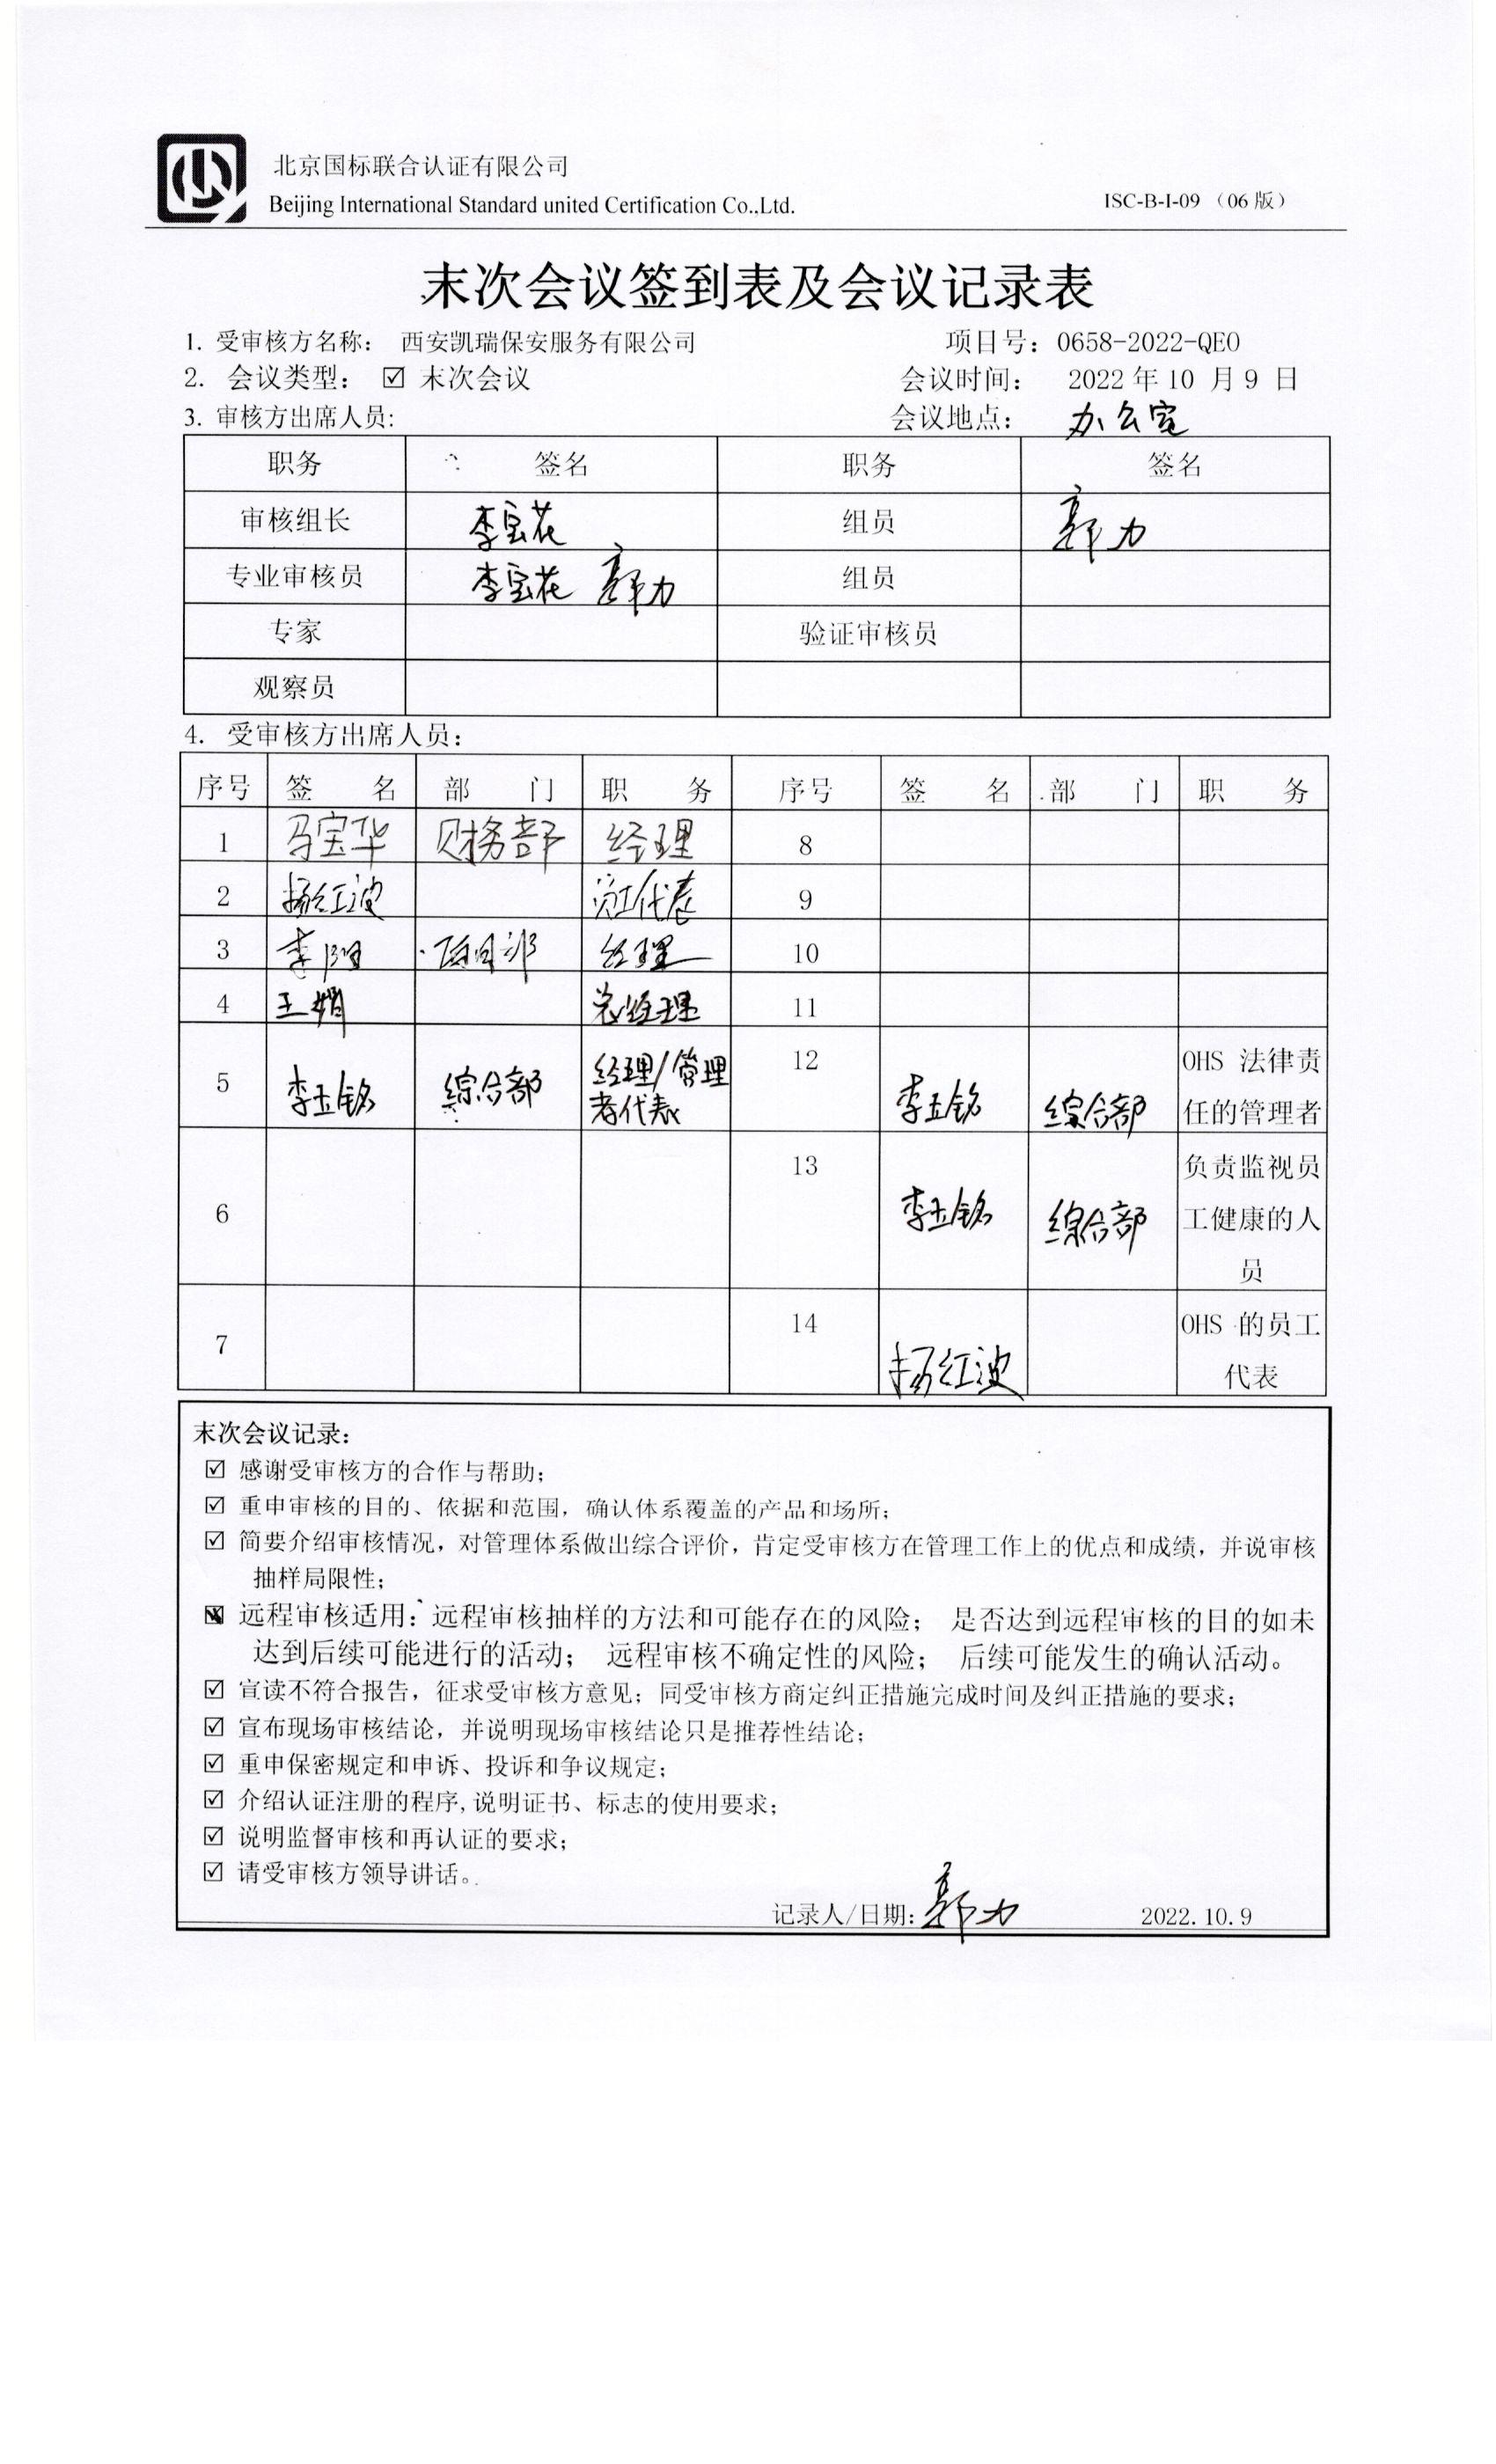 北京国标联合认证有限公司
Beijing International Standard united Certification Co.,Ltd.
ISC-B-I-09 （06 版）
末次会议签到表及会议记录表
1. 受审核方名称： 西安凯瑞保安服务有限公司 项目号：0658-2022-QEO
2. 会议类型： ☑ 末次会议 会议时间： 2022 年 10 月 9 日
3. 审核方出席人员: 会议地点： 办公室
职务 签名 职务 签名
审核组长 李宝花 组员 郭力
专业审核员 李宝花 郭力 组员
专家 验证审核员
观察员
4. 受审核方出席人员：
序号 签 名 部 门 职 务 序号 签 名 部 门 职 务
1 马宝华 财务部 经理 8
2 杨红波 员工代表 9
3 李阳 项目部 经理 10
4 王娟 总经理 11
5 李玉铭 综合部 经理/管理者代表 12 李玉铭 综合部 OHS 法律责任的管理者
6 13 李玉铭 综合部 负责监视员工健康的人员
7 14 杨红波 OHS 的员工代表
末次会议记录：
☑ 感谢受审核方的合作与帮助；
☑ 重申审核的目的、依据和范围，确认体系覆盖的产品和场所；
☑ 简要介绍审核情况，对管理体系做出综合评价，肯定受审核方在管理工作上的优点和成绩，并说审核
抽样局限性；
☒ 远程审核适用：远程审核抽样的方法和可能存在的风险； 是否达到远程审核的目的如未
达到后续可能进行的活动； 远程审核不确定性的风险； 后续可能发生的确认活动。
☑ 宣读不符合报告，征求受审核方意见；同受审核方商定纠正措施完成时间及纠正措施的要求；
☑ 宣布现场审核结论，并说明现场审核结论只是推荐性结论；
☑ 重申保密规定和申诉、投诉和争议规定；
☑ 介绍认证注册的程序,说明证书、标志的使用要求；
☑ 说明监督审核和再认证的要求；
☑ 请受审核方领导讲话。
记录人/日期：郭力 2022.10.9